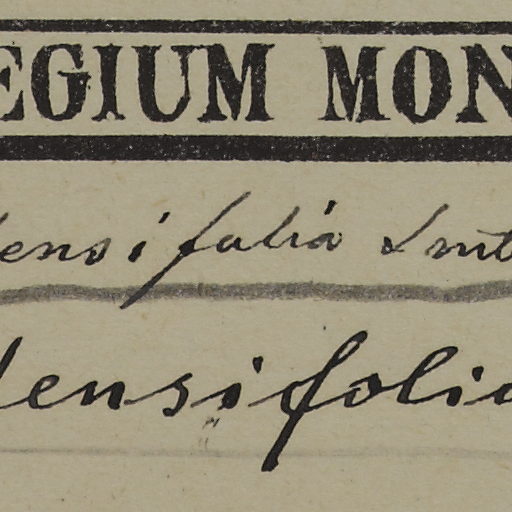 EGIUM MON
densifolia Smt
densifolia